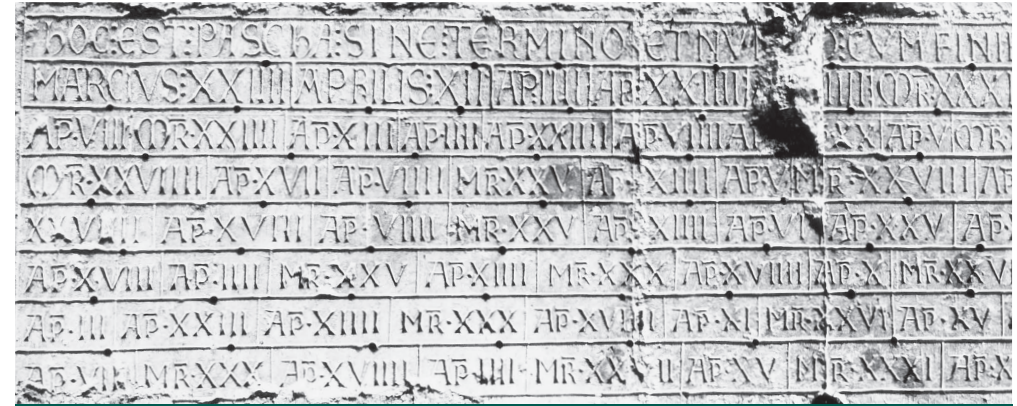 hOC:EST:PASChA:SINE:TERMINO:ET NV CVM FINI
MARCIVS:XXIIII APRILIS:XII AP·IIII AP·XXIIII IIII MR·XXXI
AP·VIII MR·XXIIII AP·XIII AP·IIII AP·XXIIII AP·VIIII AP XX AP·V MR·
MR·XXVIIII AP·XVII AP·VIIII MR·XXV AP· XIIII AP·V MR·XXVIII AP
XXVIIII AP·XVIII AP·VIIII MR·XXV AP· XIIII AP·VI AP·XXV AP·X
AP·XVIII AP·IIII MR·XXV AP·XIIII MR·XXX AP·XVIIII AP·X MR·XXVI
AP·III AP·XXIII AP·XIIII MR·XXX AP·XV AP·XI MR·XXVI AP·XV
AP·VII MR·XXX AP·XVIIII AP·IIII MR·XX II AP·XV MR·XXXI AP·X